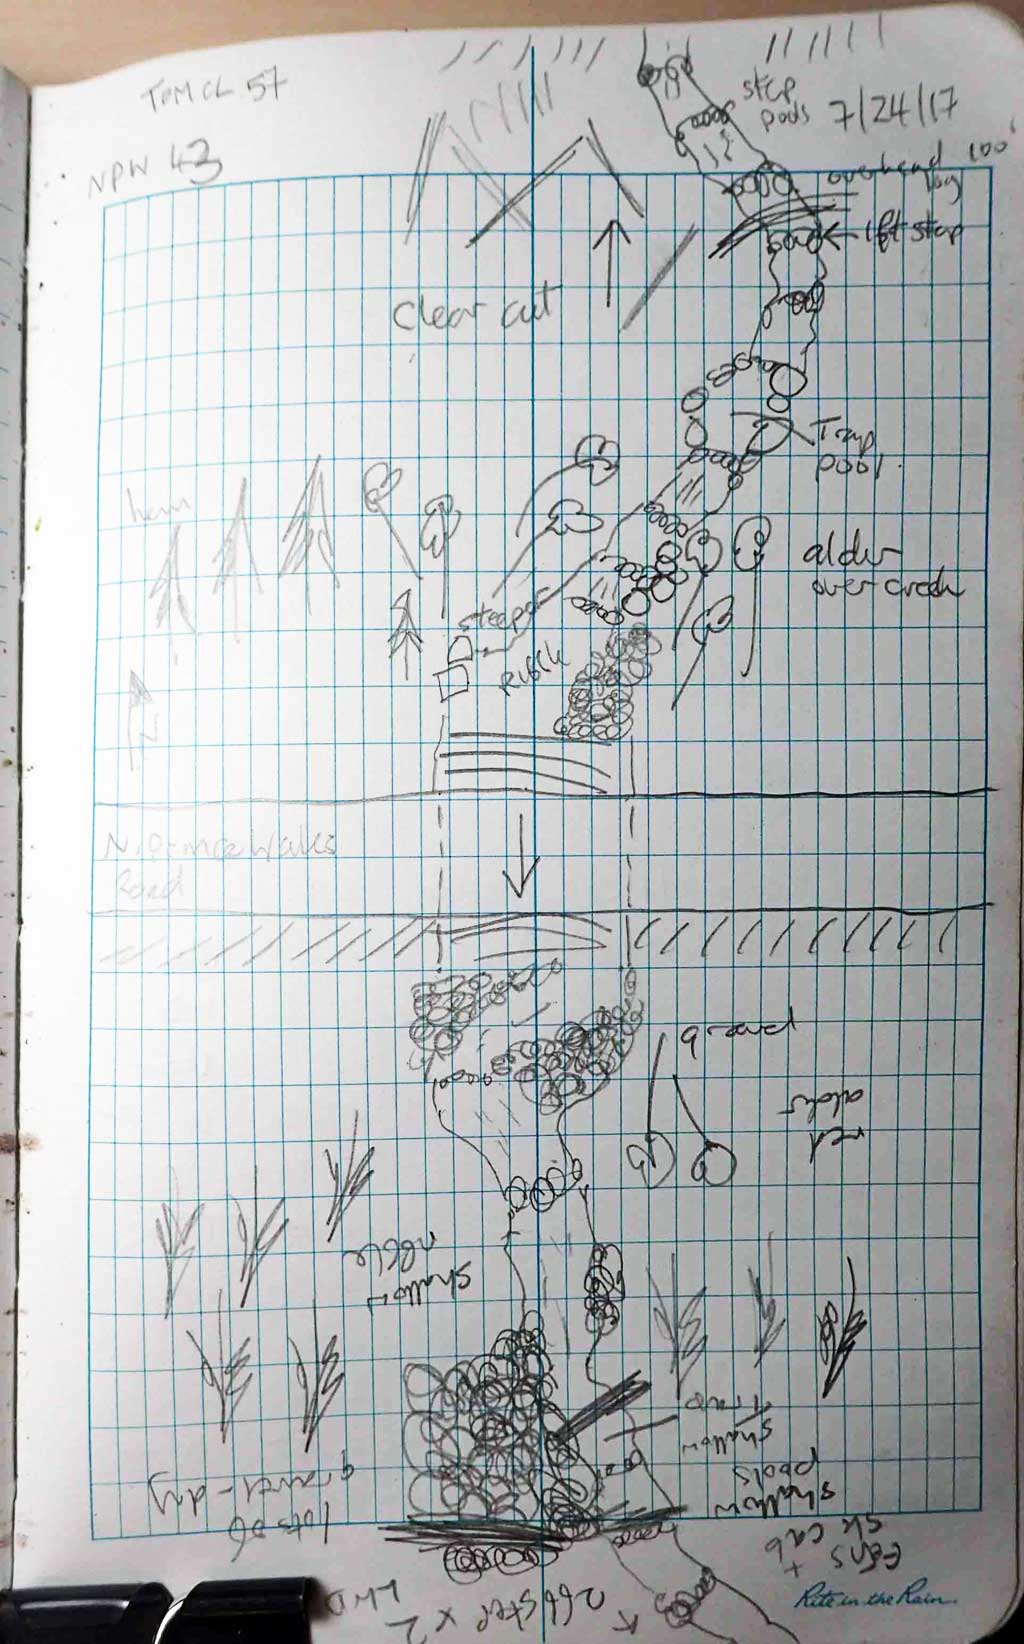 TOMCL 57
NPW 43
step
pools
7/24/17
overhead
log
100'
1ft step
clear cut
Trap
pool
hem
alder
over creek
steeper
N
N. Prince Wales
Road
red
alder
shallow
shallow
Trap
shallow
pools
lots of
gravel - dry
ferns
+
sk cab
2ft step x 2
LWD
Rite in the Rain